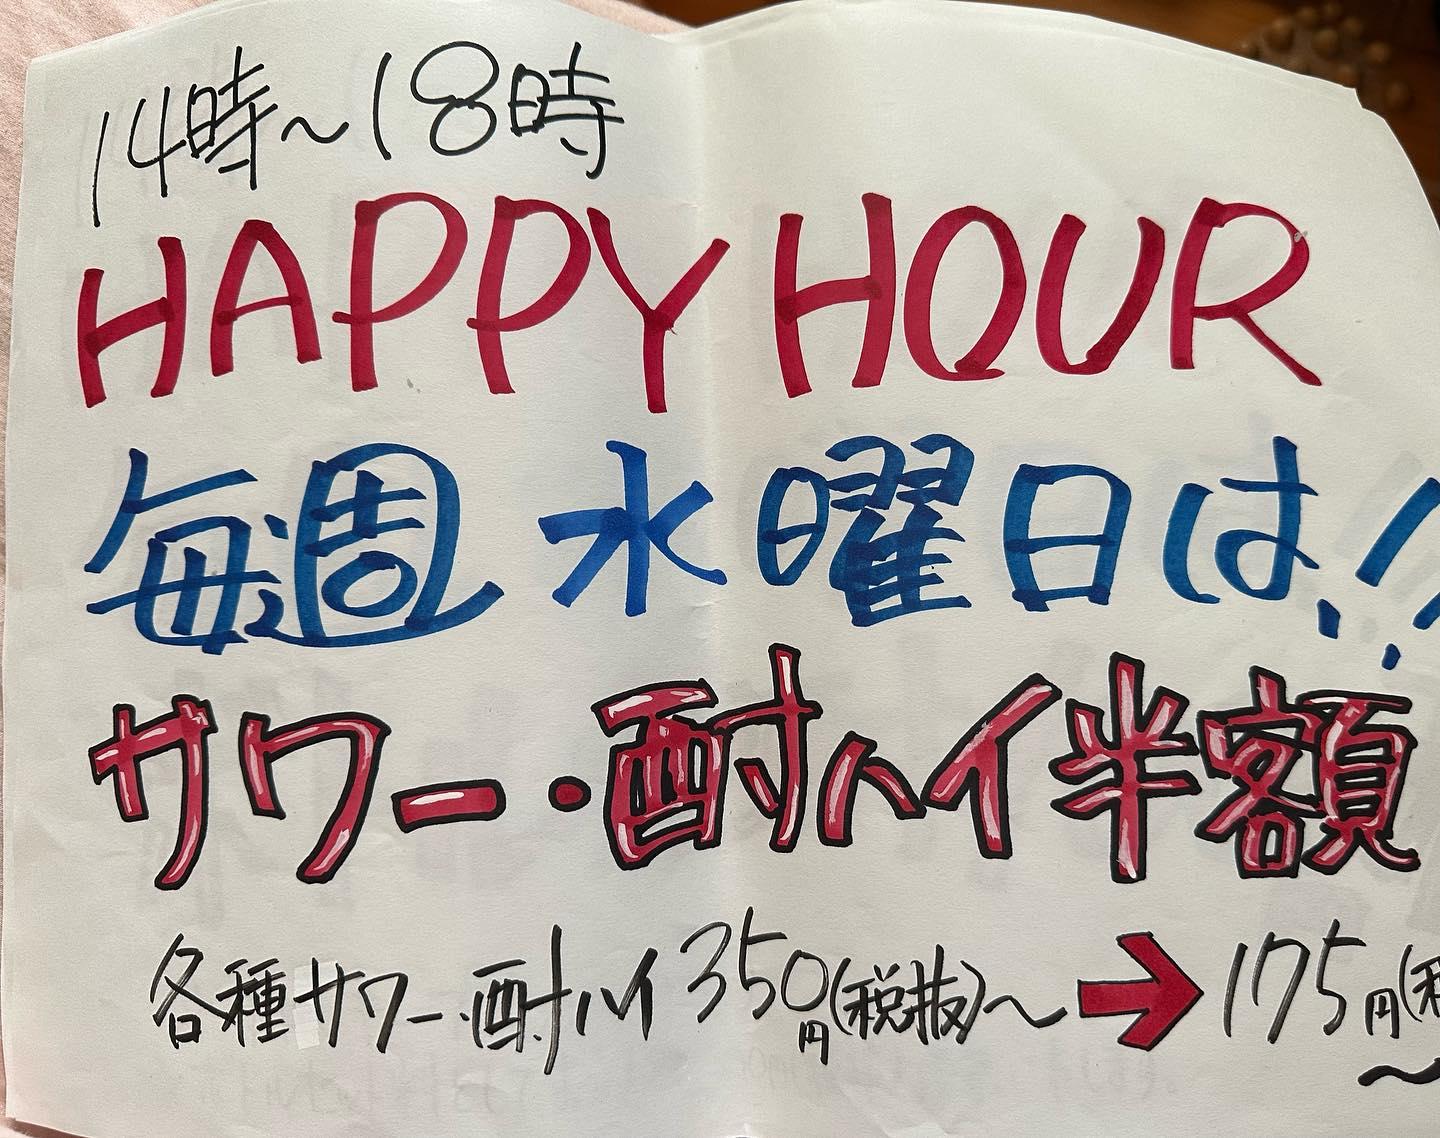 14時～18時
HAPPY HOUR
毎週 水曜日は!!
サワー・酎ハイ半額
各種サワー・酎ハイ 350円(税抜)～ → 175円(税
～